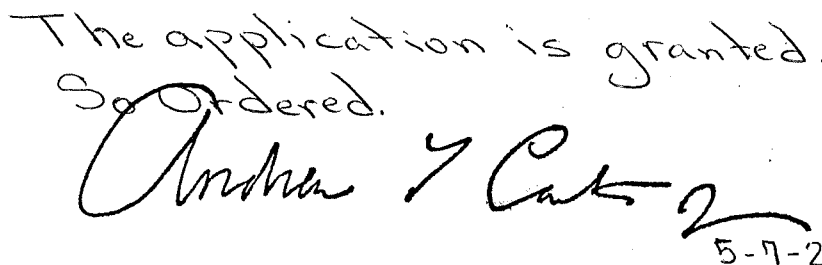 The application is granted.
So Ordered.
Andrew
5-7-2